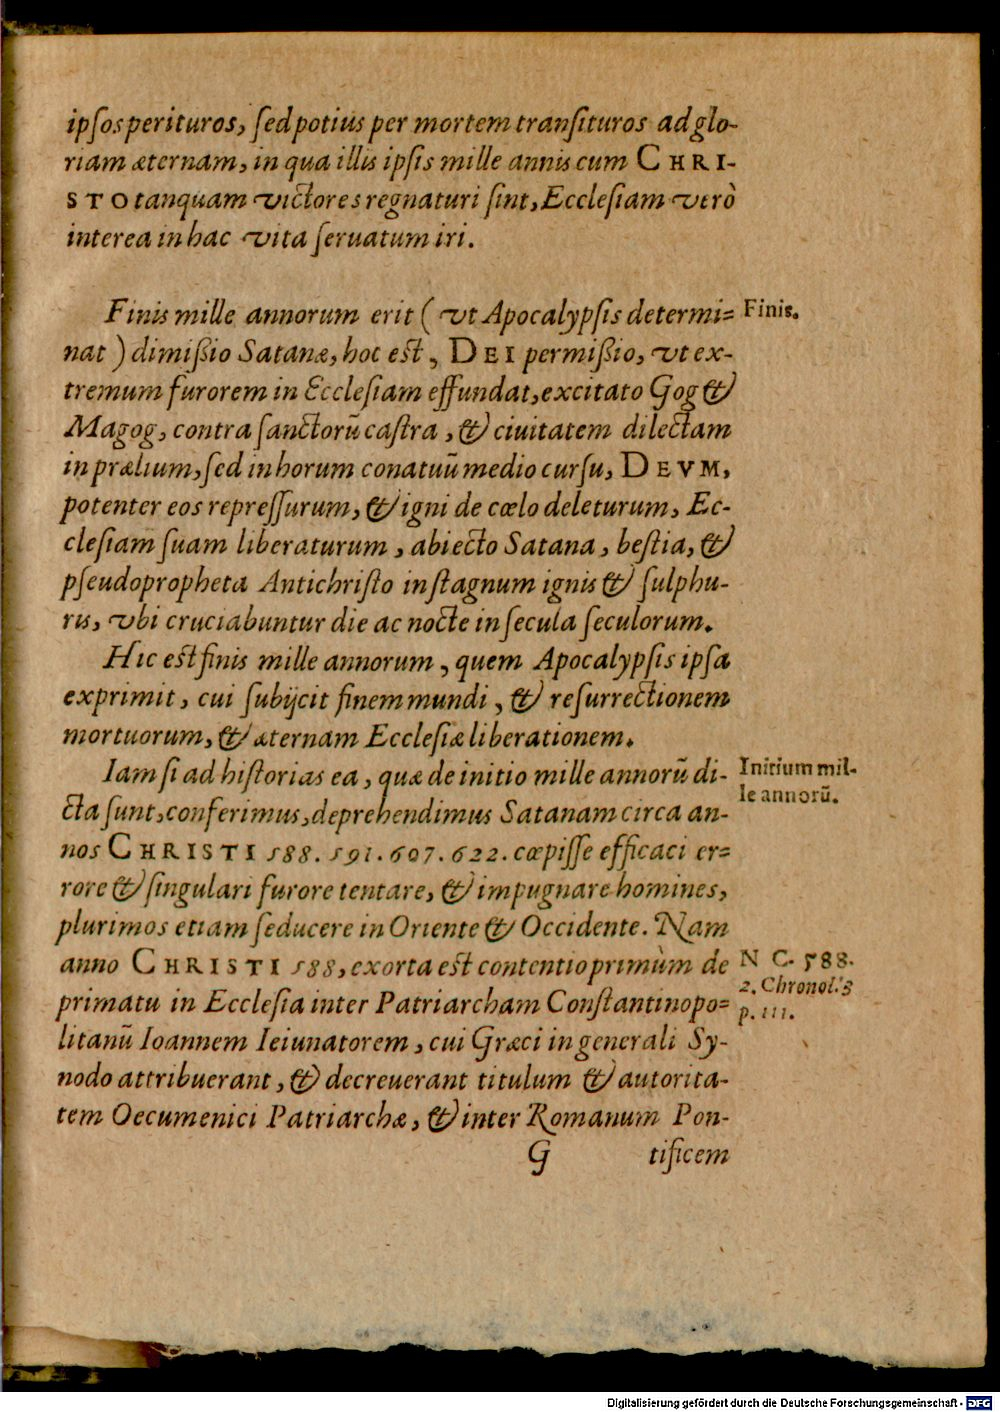 ipſos perituros, ſed potius per mortem tranſituros ad glo-
riam æternam, in qua illis ipſis mille annis cum CHRI-
STO tanquam victores regnaturi ſint, Eccleſiam verò
interea in hac vita ſeruatum iri.
Finis mille annorum erit ( vt Apocalypſis determi=
Finis.
nat ) dimißio Satanæ, hoc eſt, DEI permißio, vt ex-
tremum furorem in Eccleſiam effundat, excitato Gog &
Magog, contra ſanctorū caſtra, & ciuitatem dilectam
in prælium, ſed in horum conatuū medio curſu, DEVM,
potenter eos repreſſurum, & igni de cœlo deleturum, Ec-
cleſiam ſuam liberaturum, abiecto Satana, beſtia, &
pſeudopropheta Antichriſto in ſtagnum ignis & ſulphu-
ris, vbi cruciabuntur die ac nocte in ſecula ſeculorum.
Hic eſt finis mille annorum, quem Apocalypſis ipſa
exprimit, cui ſubijcit finem mundi, & reſurrectionem
mortuorum, & æternam Eccleſiæ liberationem.
Iam ſi ad hiſtorias ea, quæ de initio mille annorū di-
Initium mil-
le annorū.
cta ſunt, conferimus, deprehendimus Satanam circa an-
nos CHRISTI 588. 591. 607. 622. cœpiſſe efficaci er=
rore & ſingulari furore tentare, & impugnare homines,
plurimos etiam ſeducere in Oriente & Occidente. Nam
anno CHRISTI 588, exorta eſt contentio primùm de
N C. 588.
2. Chronol.
p. 111.
primatu in Eccleſia inter Patriarcham Conſtantinopo=
litanū Ioannem Ieiunatorem, cui Græci in generali Sy-
nodo attribuerant, & decreuerant titulum & autorita-
tem Oecumenici Patriarchæ, & inter Romanum Pon-
G tificem
Digitalisierung gefördert durch die Deutsche Forschungsgemeinschaft - DFG